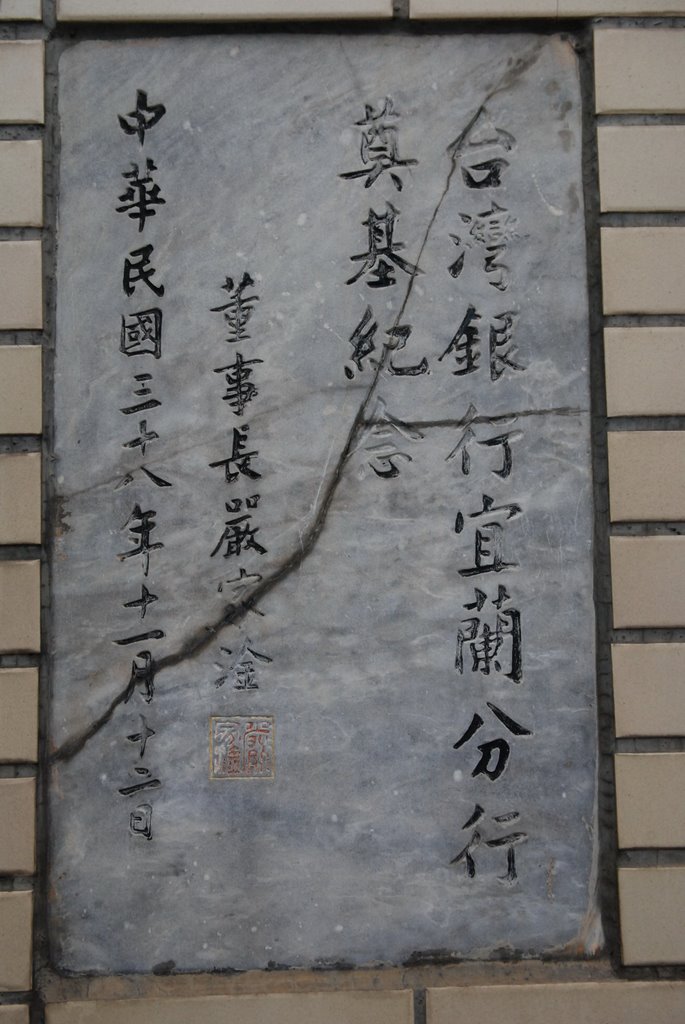 台灣銀行宜蘭分行
奠基紀念
董事長嚴家淦
中華民國三十八年十一月十二日
嚴家淦